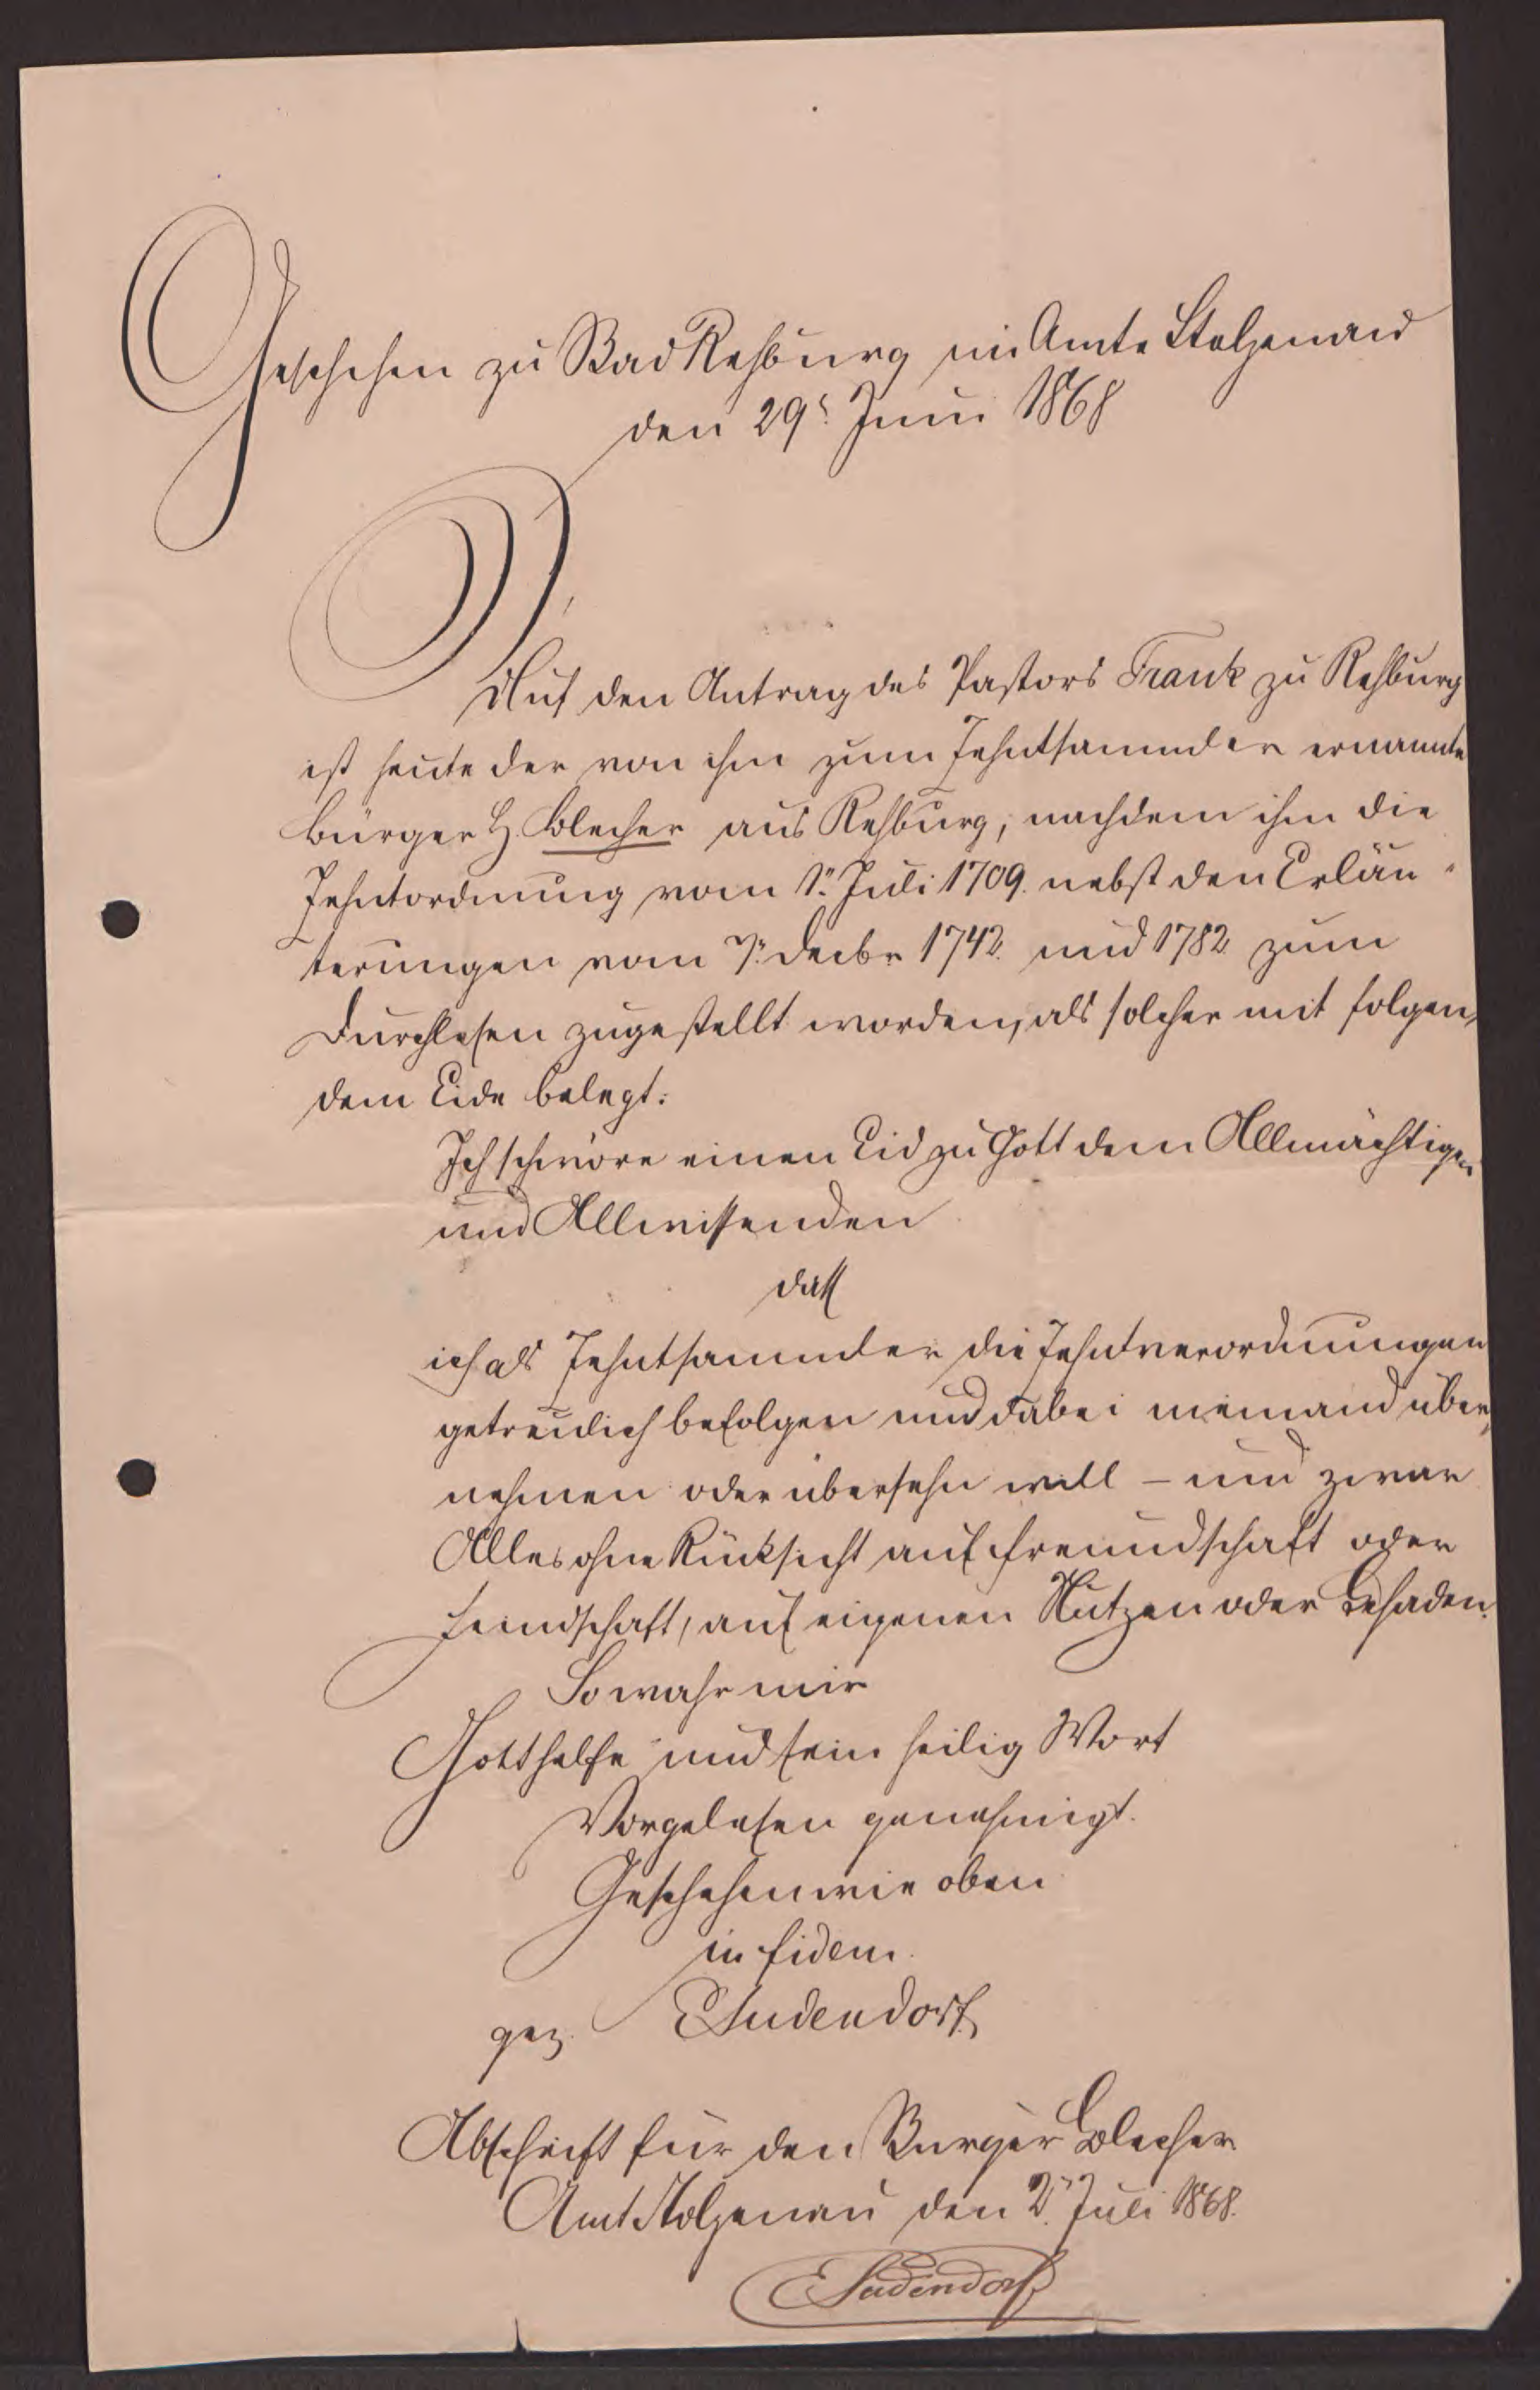 Geschehen zu Bad Rehburg im Amte Stolzenau
den 29t. Juni 1868
Auf den Antrag des Pastors Frank zu Rehburg
ist heute der von ihm zum Zehntsammler ernannte
Bürger H. Blecher aus Rehburg, nachdem ihm die
Zehntordnung vom 1n. Juli 1709. nebst den Erläu-
terungen vom 7n. Decbr 1742. und 1782 zum
Durchlesen zugestellt worden, als solcher mit folgen-
dem Eide belegt:
Ich schwöre einen Eid zu Gott dem Allmächtigen
und Allwissenden
daß
ich als Zehntsammler die Zehntverordnungen
getreulich befolgen und dabei niemand über-
nehmen oder übersehn will – und zwar
Alles ohne Rücksicht auf Freundschaft oder
Feindschaft, auf eigenen Nutzen oder Schaden.
So wahr mir
Gott helfe und sein heilig Wort
Vorgelesen genehmigt.
Geschehen wie oben
in fidem.
gez. ESudendorf
Abschrift für den Bürger Blecher
Amt Stolzenau den 2n. Juli 1868.
ESudendorf